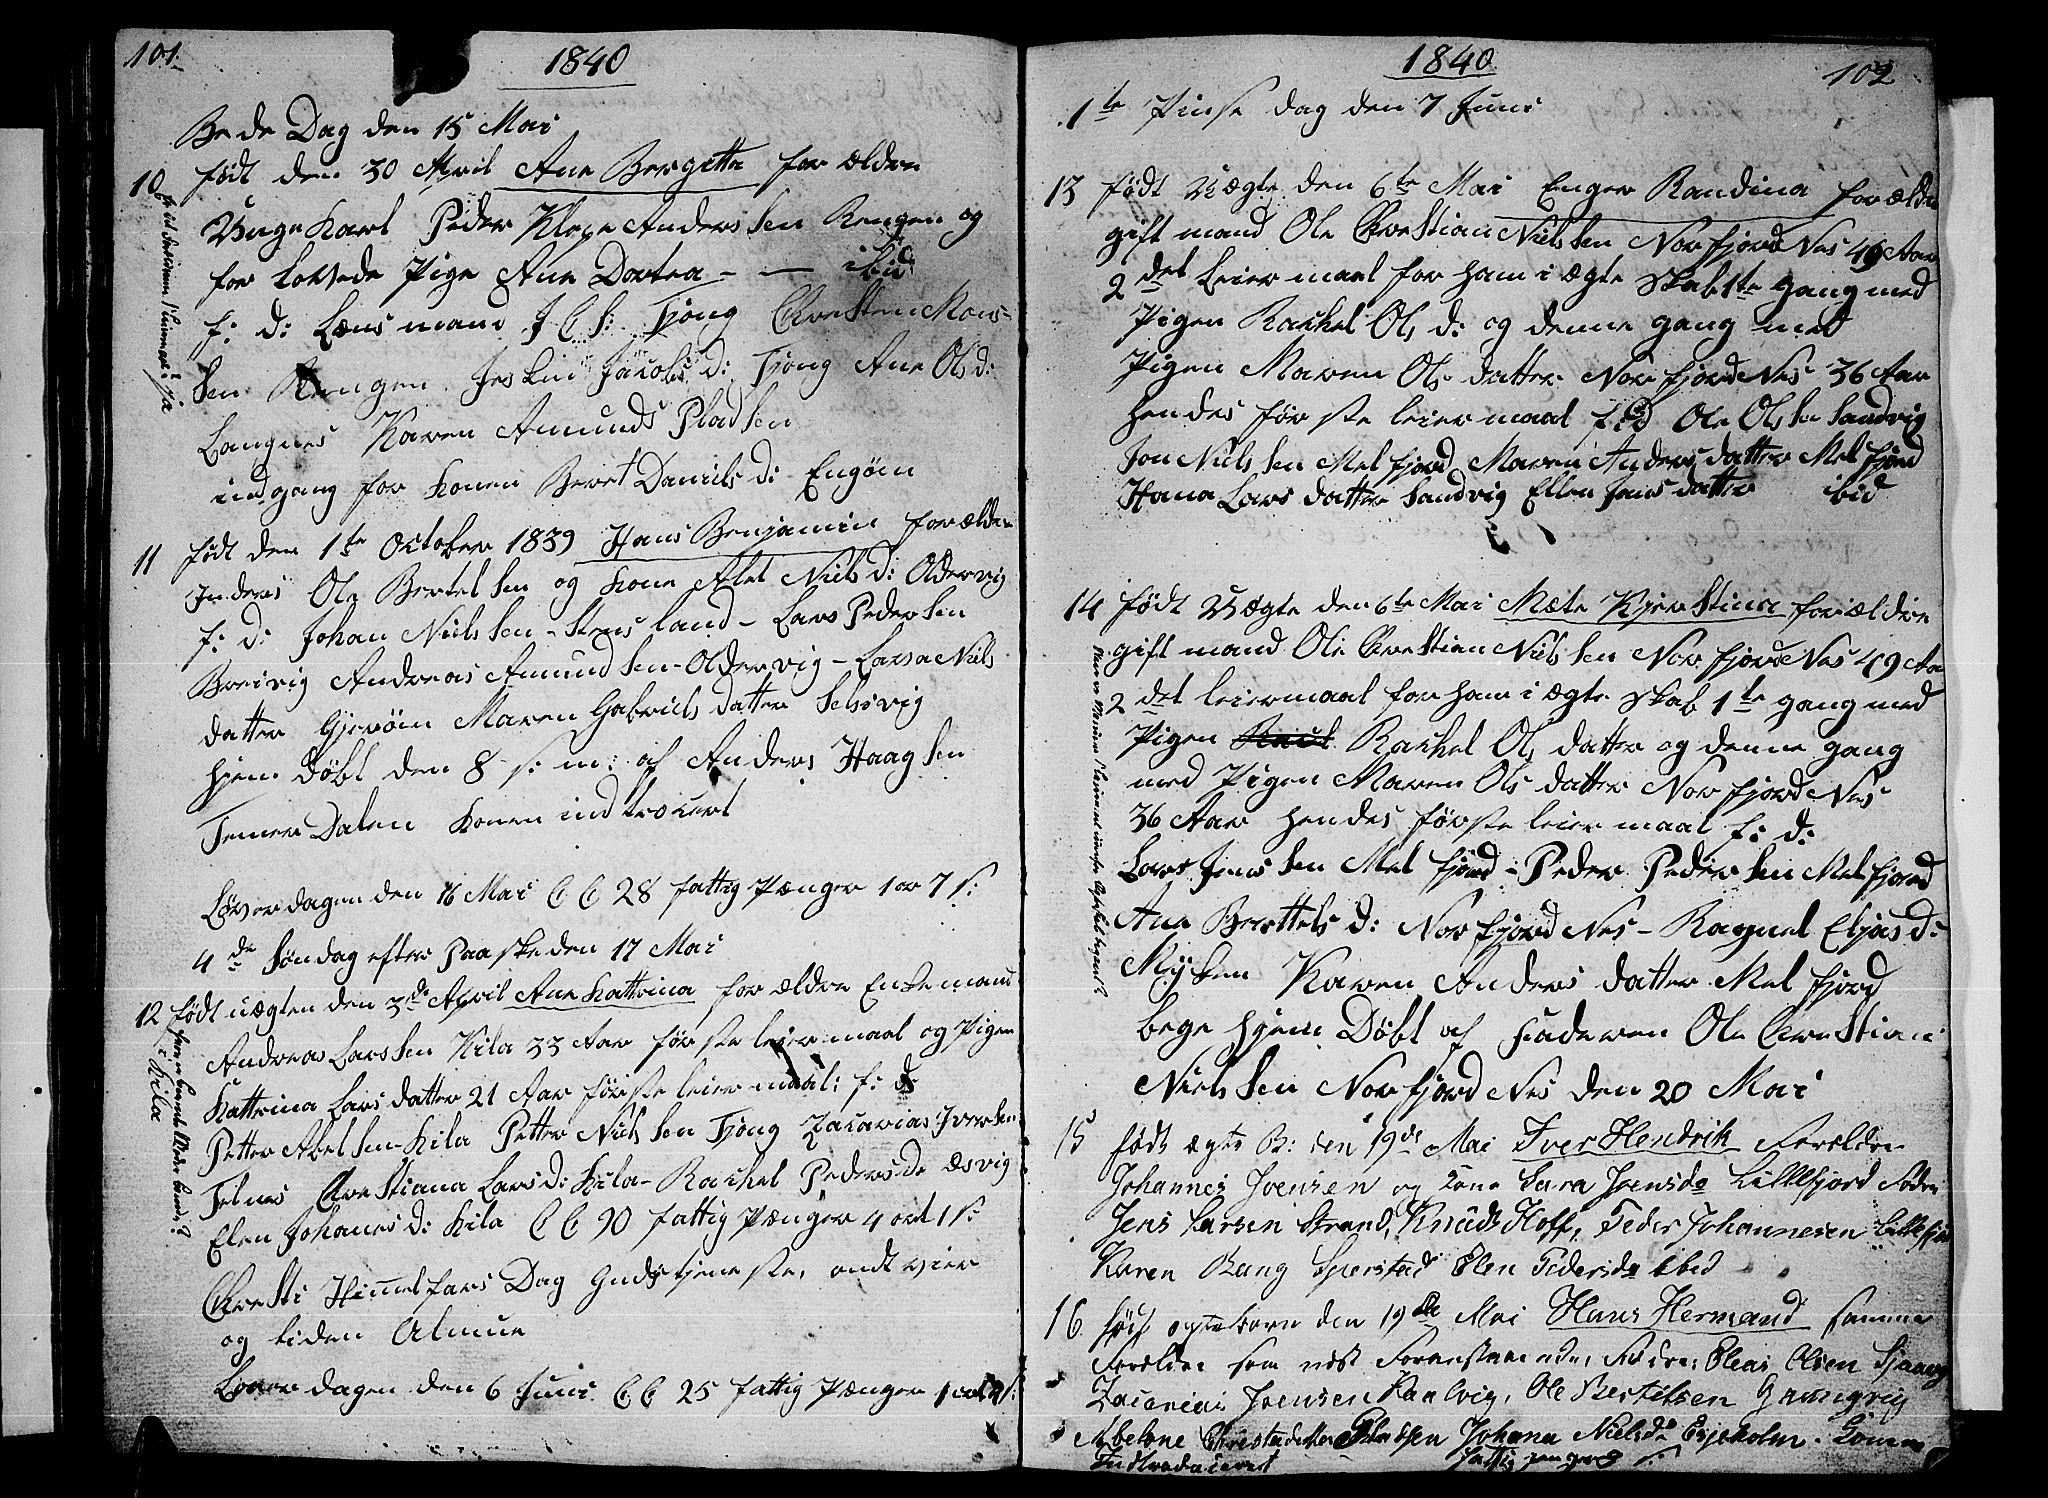 101.
1840
Bede Dag den 15 Mai
10 født den 30 April Ane Bergitta forældre
Unge Karl Peder Klope Andersen Rengen og
for lovede Pige Ane Dortea - — ibid
f: d: Lænsmand J C S: Tjong Chresten Mons-
sen Rengen Jacobs d: Tjong Ane Ols d:
Langnes Karen Amunds Pladsen
indgang for Konen Beret Daniels d: Engøen
11 født den 1te October 1839 Hans Benjamin forældre
Inders Ole Bertelsen og Kone Alet Niels d: Oldervig
f: d: Johan Nielssen - Stensland - Lars Pedersen
Breivig Andreas Amundsen - Oldervig - Larsa Niels
datter Gjerøen Maren Gabriels datter Selsvig
hjem døbt den 8 s: m: af Anders Haagsen
Temer Dalen Konen introducert
Løverdagen den 16 Mai C C 28 fattig Pænger 1 or 7 s:
4de Søndag efter Paaske den 17 Mai
12 født uægten den 3de April Ane Kattrina forældre Enkemand
Andreas Larssen Kila 33 Aar første leiermaal og Pigen
Kattrina Larsdatter 21 Aar første leiermaal: f: d:
Petter Abelsen - Kila Petter Nielssen Tjong Zakarias Iversen
Telnes Chrestiana Lars d: Kila - Rachel Peders d: Æsvig
Elen Johanes d: Kila C C 90 fattig Pænger 4 ort 1 s:
Chresti Himmelfars Dag Gudstjeneste, ondt veir
og liden Almue
Løverdagen den 6 Juni C C 25 fattig Pænger 1 ort
Kila
1840
102
1te Pinse dag den 7 Juni
13 født Uægte den 6te Mai Enger Randina forældre
gift mand Ole Chrestian Nielssen Norfjord Nes 49 Aar
2det Leiermaal for ham i ægteskab 1te gang med
Pigen Rachel Ols d: og denne gang med
Pigen Maren Ols datter Norfjord Nes 36 Aar
hendes første leiermaal f: d: Ole Olsen Sandvig
Jon Nielssen Melfjord Maren Anders datter Melfjord
Hana Lars datter Sandvig Ellen Jens datter ibid
14 født Uægte den 6te Mai Mete Kjerstina forældre
gift mand Ole Chrestian Nielssen Norfjord Nes 49 Aar
2det leiermaal for ham i ægteskab 1te gang med
Pigen Rachel Ols datter og denne gang
med Pigen Maren Ols datter Norfjord Nes
36 Aar hendes første leiermaal f: d:
Lars Jenssen Melfjord - Peder Pederssen Melfjord
Ane Berttels d: Norfjord Nes - Ragnel Eljas d:
Myken Karen Anders datter Melfjord
bege hjem Døbt af Faderen Ole Chrestian
Nielssen Norfjord Nes den 20 Mai
15 født ægte B: den 19de Mai Iver Hendrik Foreldre
Johannes Ivensen og Kone Sara Ivensda Lillefjord
Jens Larsen Strand, Knuds Hoff, Peder Johannesen Lillefjord
Karen Bang Sperstad Elen Pedersda ibid
16 født ægte barn den 19de Mai Hans Hermand samme
Foreldre som nest Forestaaende, Elias Olsen
Zacarias Ivensen Kaalvig, Ole Bertilsen Grimgvig
Abelone Pladsen Johana Nielsda Esjeholm. Konen
Fattig